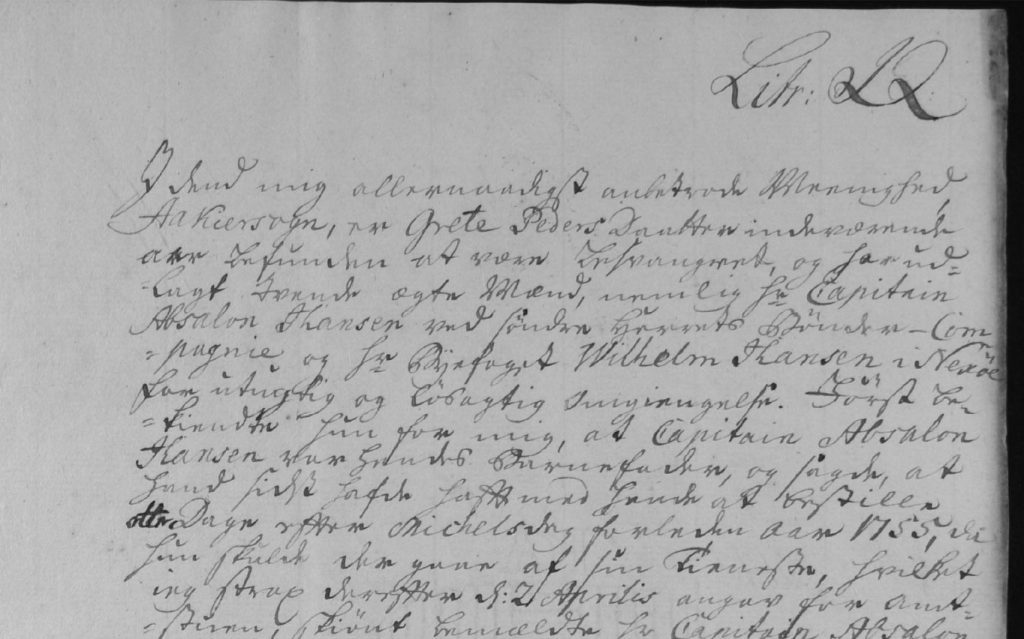 Litr: QQ
I dend mig allernaadigst anbetrode Meenighed
Aakiersogn, er Grete Peders Daatter indeværende
aar befunden at være besvangret, og har ud-
-lagt tvende ægte Mænd, nemlig hr Capitain
Absalon Hansen ved søndre Herrets Bønder-Com
-pagnie og hr Byefoget Wilhelm Hansen i Nexöe
for utugtig og løsagtig Omgiengelse. Først be-
-kiendte hun for mig, at Capitain Absalon
Hansen var hendes Barnefader, og sagde, at
hand sidst hafde hafft med hende at bestille
otte Dage effter Michelsdag forleden Aar 1755, da
hun skulde der gaae af sin Tieneste, hvilket
ieg strax derefter d: 2 Aprilis angav for Amt-
-stuen, skiönt bemældte hr Capitain Absalon